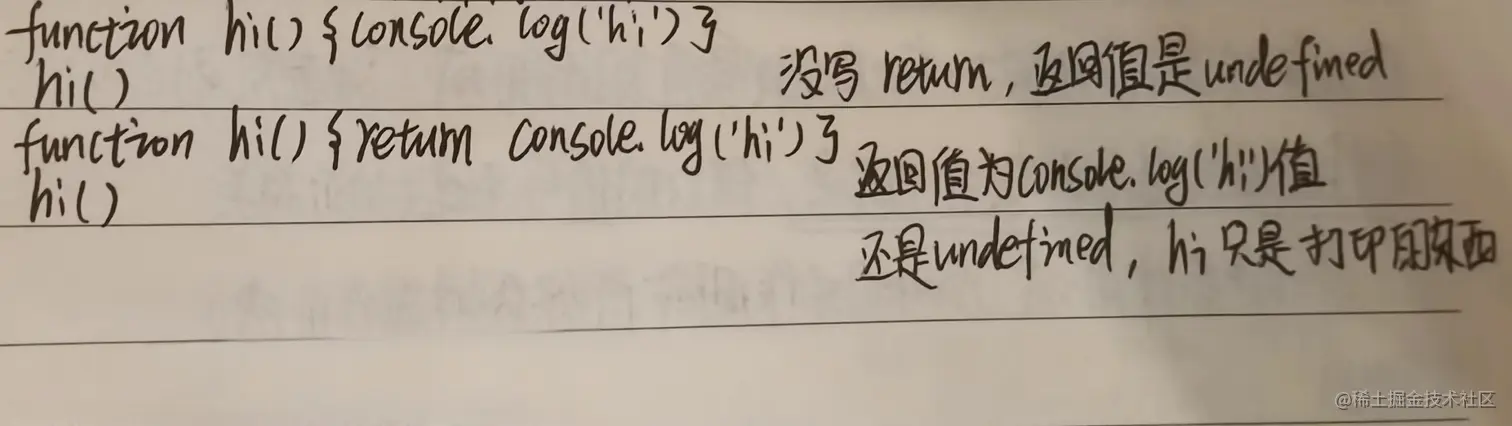 function hi() {console.log('hi')}
hi()
没写 return，返回值是undefined
function hi() {return console.log('hi')}
hi()
返回值为console.log('hi')值
还是undefined，hi 只是打印的东西
@稀土掘金技术社区